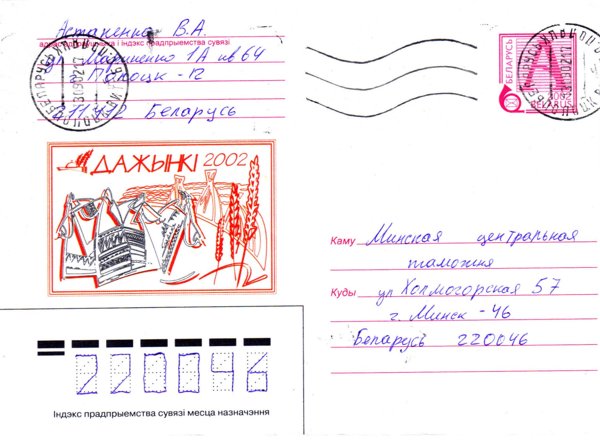 Астапенко В.А.
адрас адпраўшчыка і індэкс прадпрыемства сувязі
ул Мариненко 1А кв 64
г Полоцк - 12
Беларусь
БЕЛАРУСЬ
А
2002
BELARUS
ДАЖЫНКІ 2002
Каму Минская центральная
таможня
Куды ул Холмогорская 57
г. Минск - 46
Беларусь 220046
220046
Індэкс прадпрыемства сувязі месца назначэння